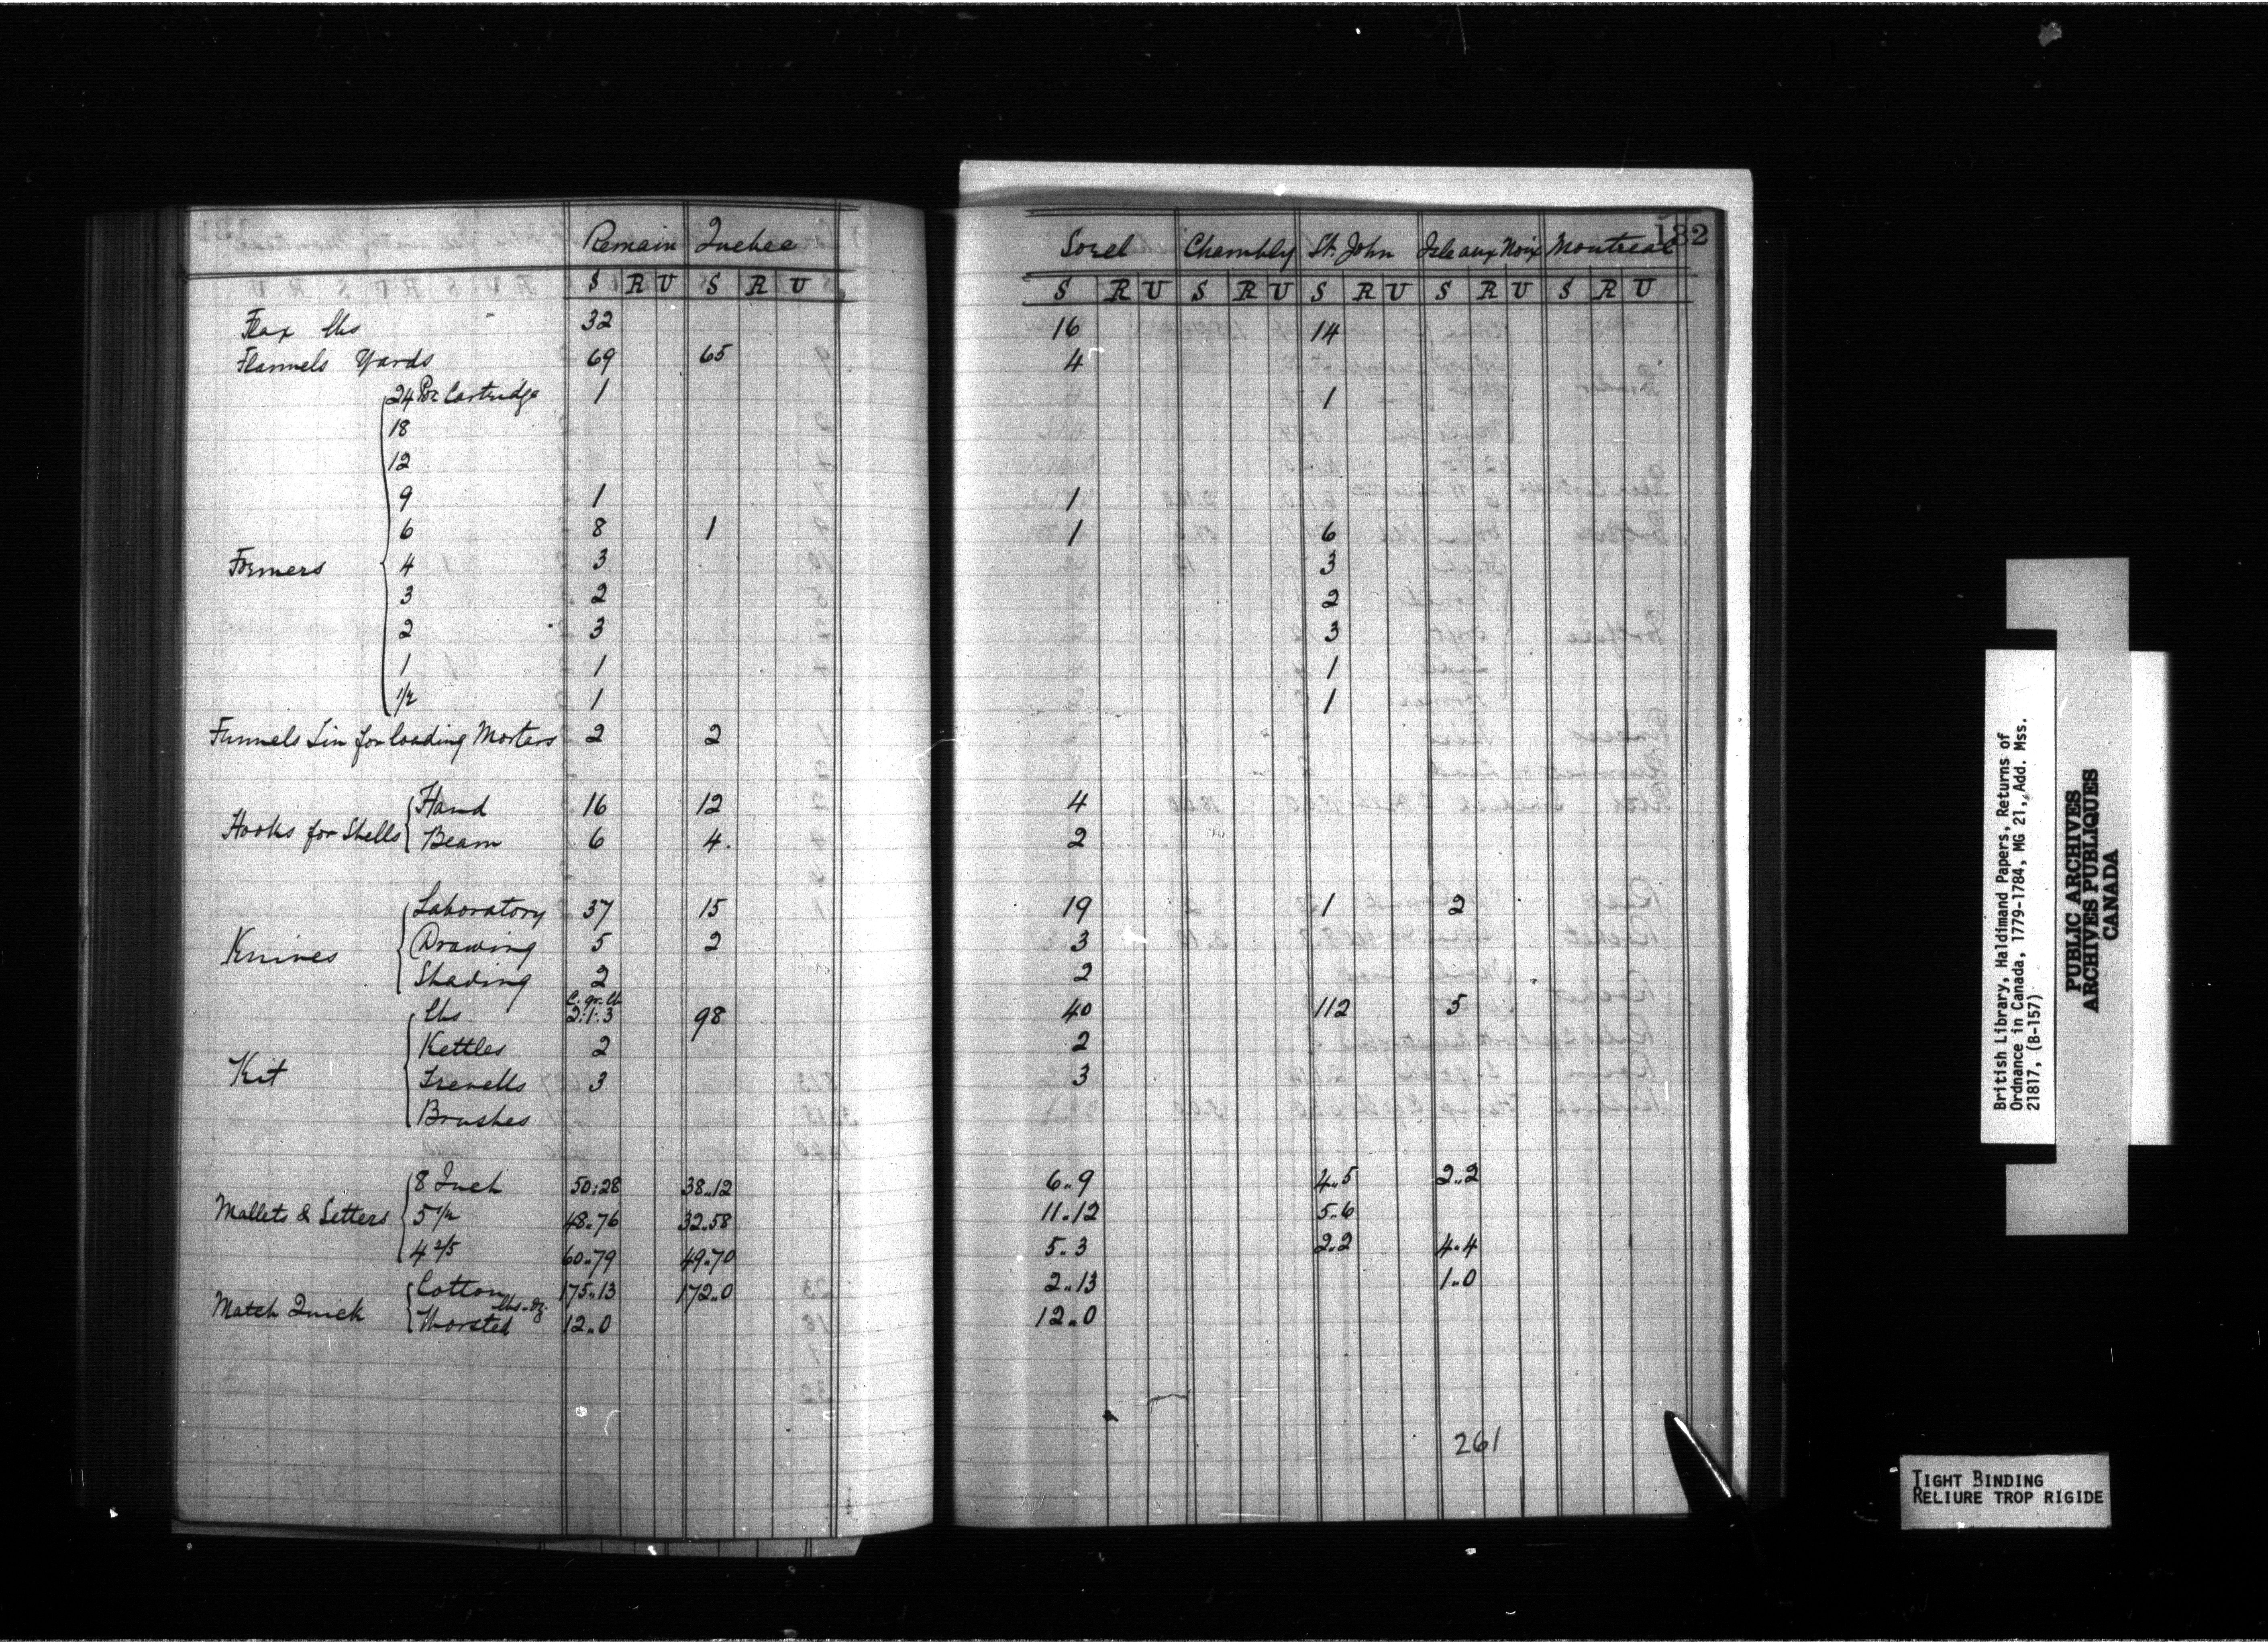 Remain Quebec Sorel Chambly St. John Isle aux Noix Montreal 132
S R U S R U S R U S R U S R U S R U S R U
Flax lbs 32 16 14
Flannels Yards 69 65 4
24 Por Cartridge 1 1
18
12
9 1 1
6 8 1 1 6
Formers 4 3 3
3 2 2
2 3 3
1 1 1
1/2 1 1
Funnels Tin for loading Mortars 2 2
Hooks for Shells Hand 16 12 4
Beam 6 4. 2
Knives Laboratory 37 15 19 1 2
Drawing 5 2 3
Shading 2 2
C. qr. lb
Kit lbs. 2.1.3 98 40 112 5
Kettles 2 2
Trevells 3 3
Brushes
Mallets & Setters 8 Inch 50:28 38..12 6..9 4..5 2..2
5 1/2 48..76 32..58 11..12 5..6
4 2/5 60..79 49..70 5..3 2..2 4..4
Match Quick Cotton 175..13 172..0 2..13 1..0
lbs - oz.
Worsted 12..0 12..0
261
British Library, Haldimand Papers, Returns of
Ordnance in Canada, 1779-1784, MG 21, Add. Mss.
21817, (B-157)
PUBLIC ARCHIVES
ARCHIVES PUBLIQUES
CANADA
TIGHT BINDING
RELIURE TROP RIGIDE